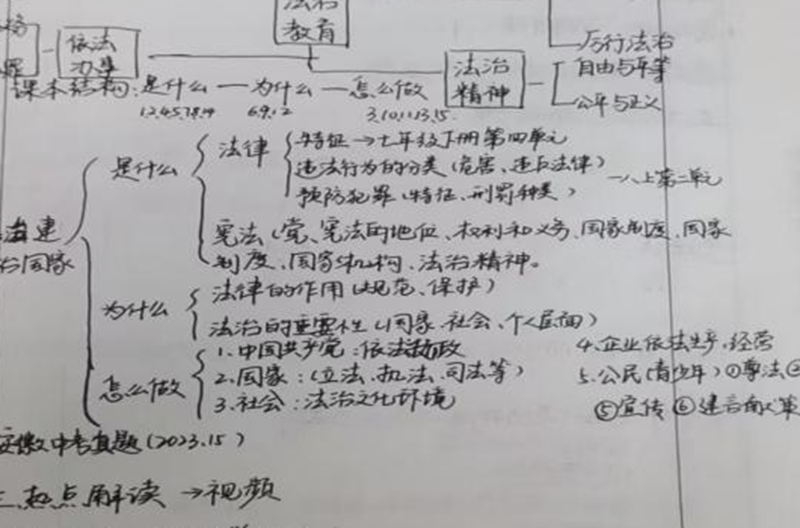 法治
教育
依法
办事
法治
精神
厉行法治
自由与平等
公平与正义
课本结构：是什么 — 为什么 — 怎么做
1,2,4,5,7,8,14 6,9,12 3,10,11,13,15.
是什么
法律
特征 → 七年级下册第四单元
违法行为的分类（危害、违反法律）
预防犯罪（特征、刑罚种类）
八上第二单元
宪法（党、宪法的地位、权利和义务、国家制度、国家
制度、国家机构、法治精神。
建
治国家
为什么
法律的作用（规范、保护）
法治的重要性（国家、社会、个人层面）
怎么做
1.中国共产党：依法执政
2.国家：（立法、执法、司法等）
3.社会：法治文化环境
4.企业依法生产、经营
5.公民（青少年）①尊法②
⑤宣传 ⑥建言献策
安徽中考真题（2023.15）
三、热点解读 → 视频